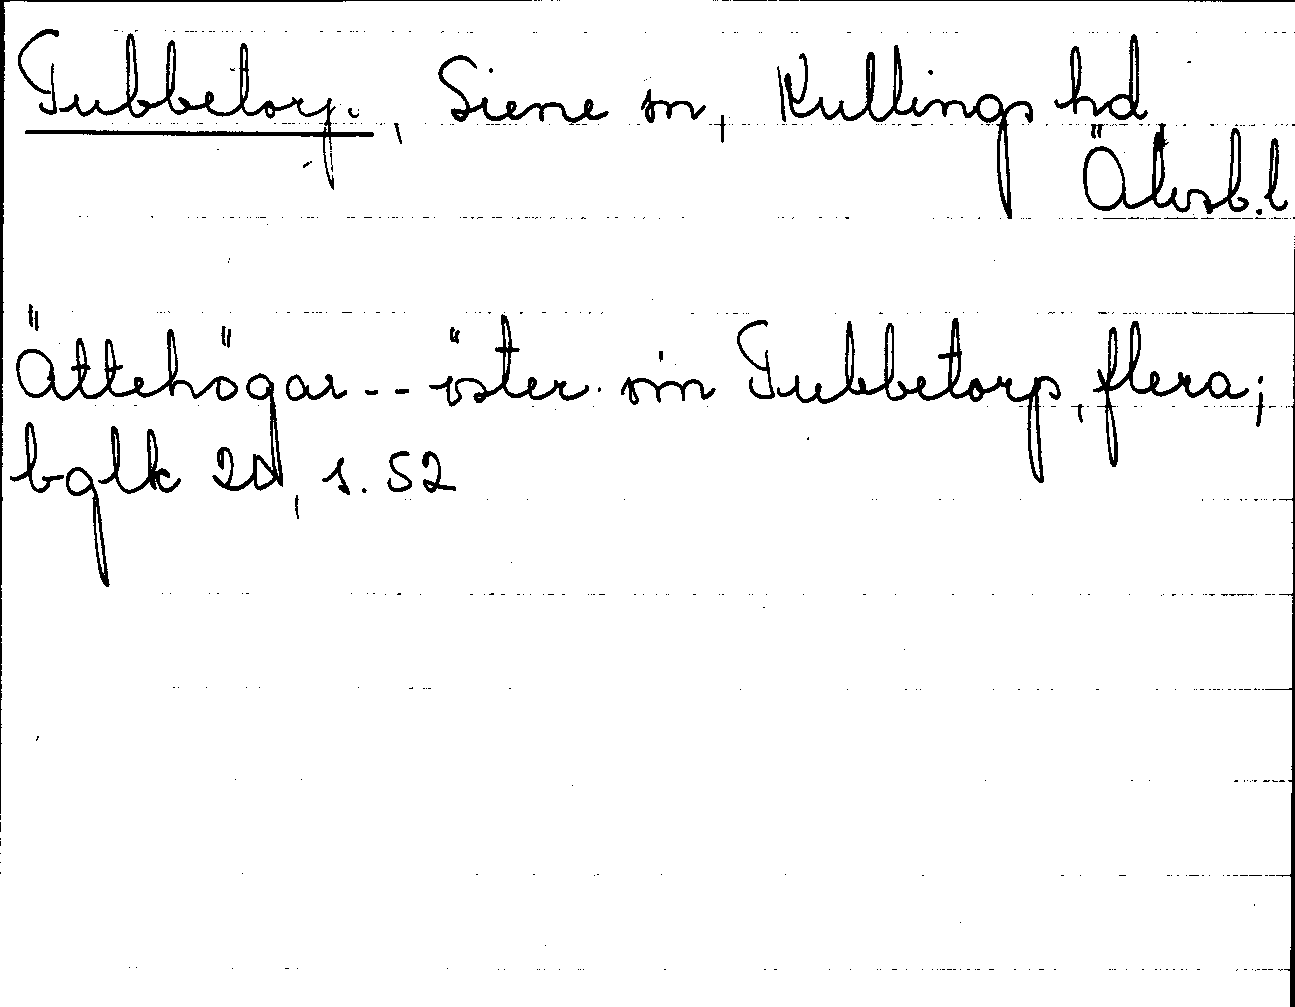 Tubbetorp, Siene sn, Kullings hd
Älvsb.l
Ättehögar -- öster om Tubbetorp, flera;
bglk 20, s. 52